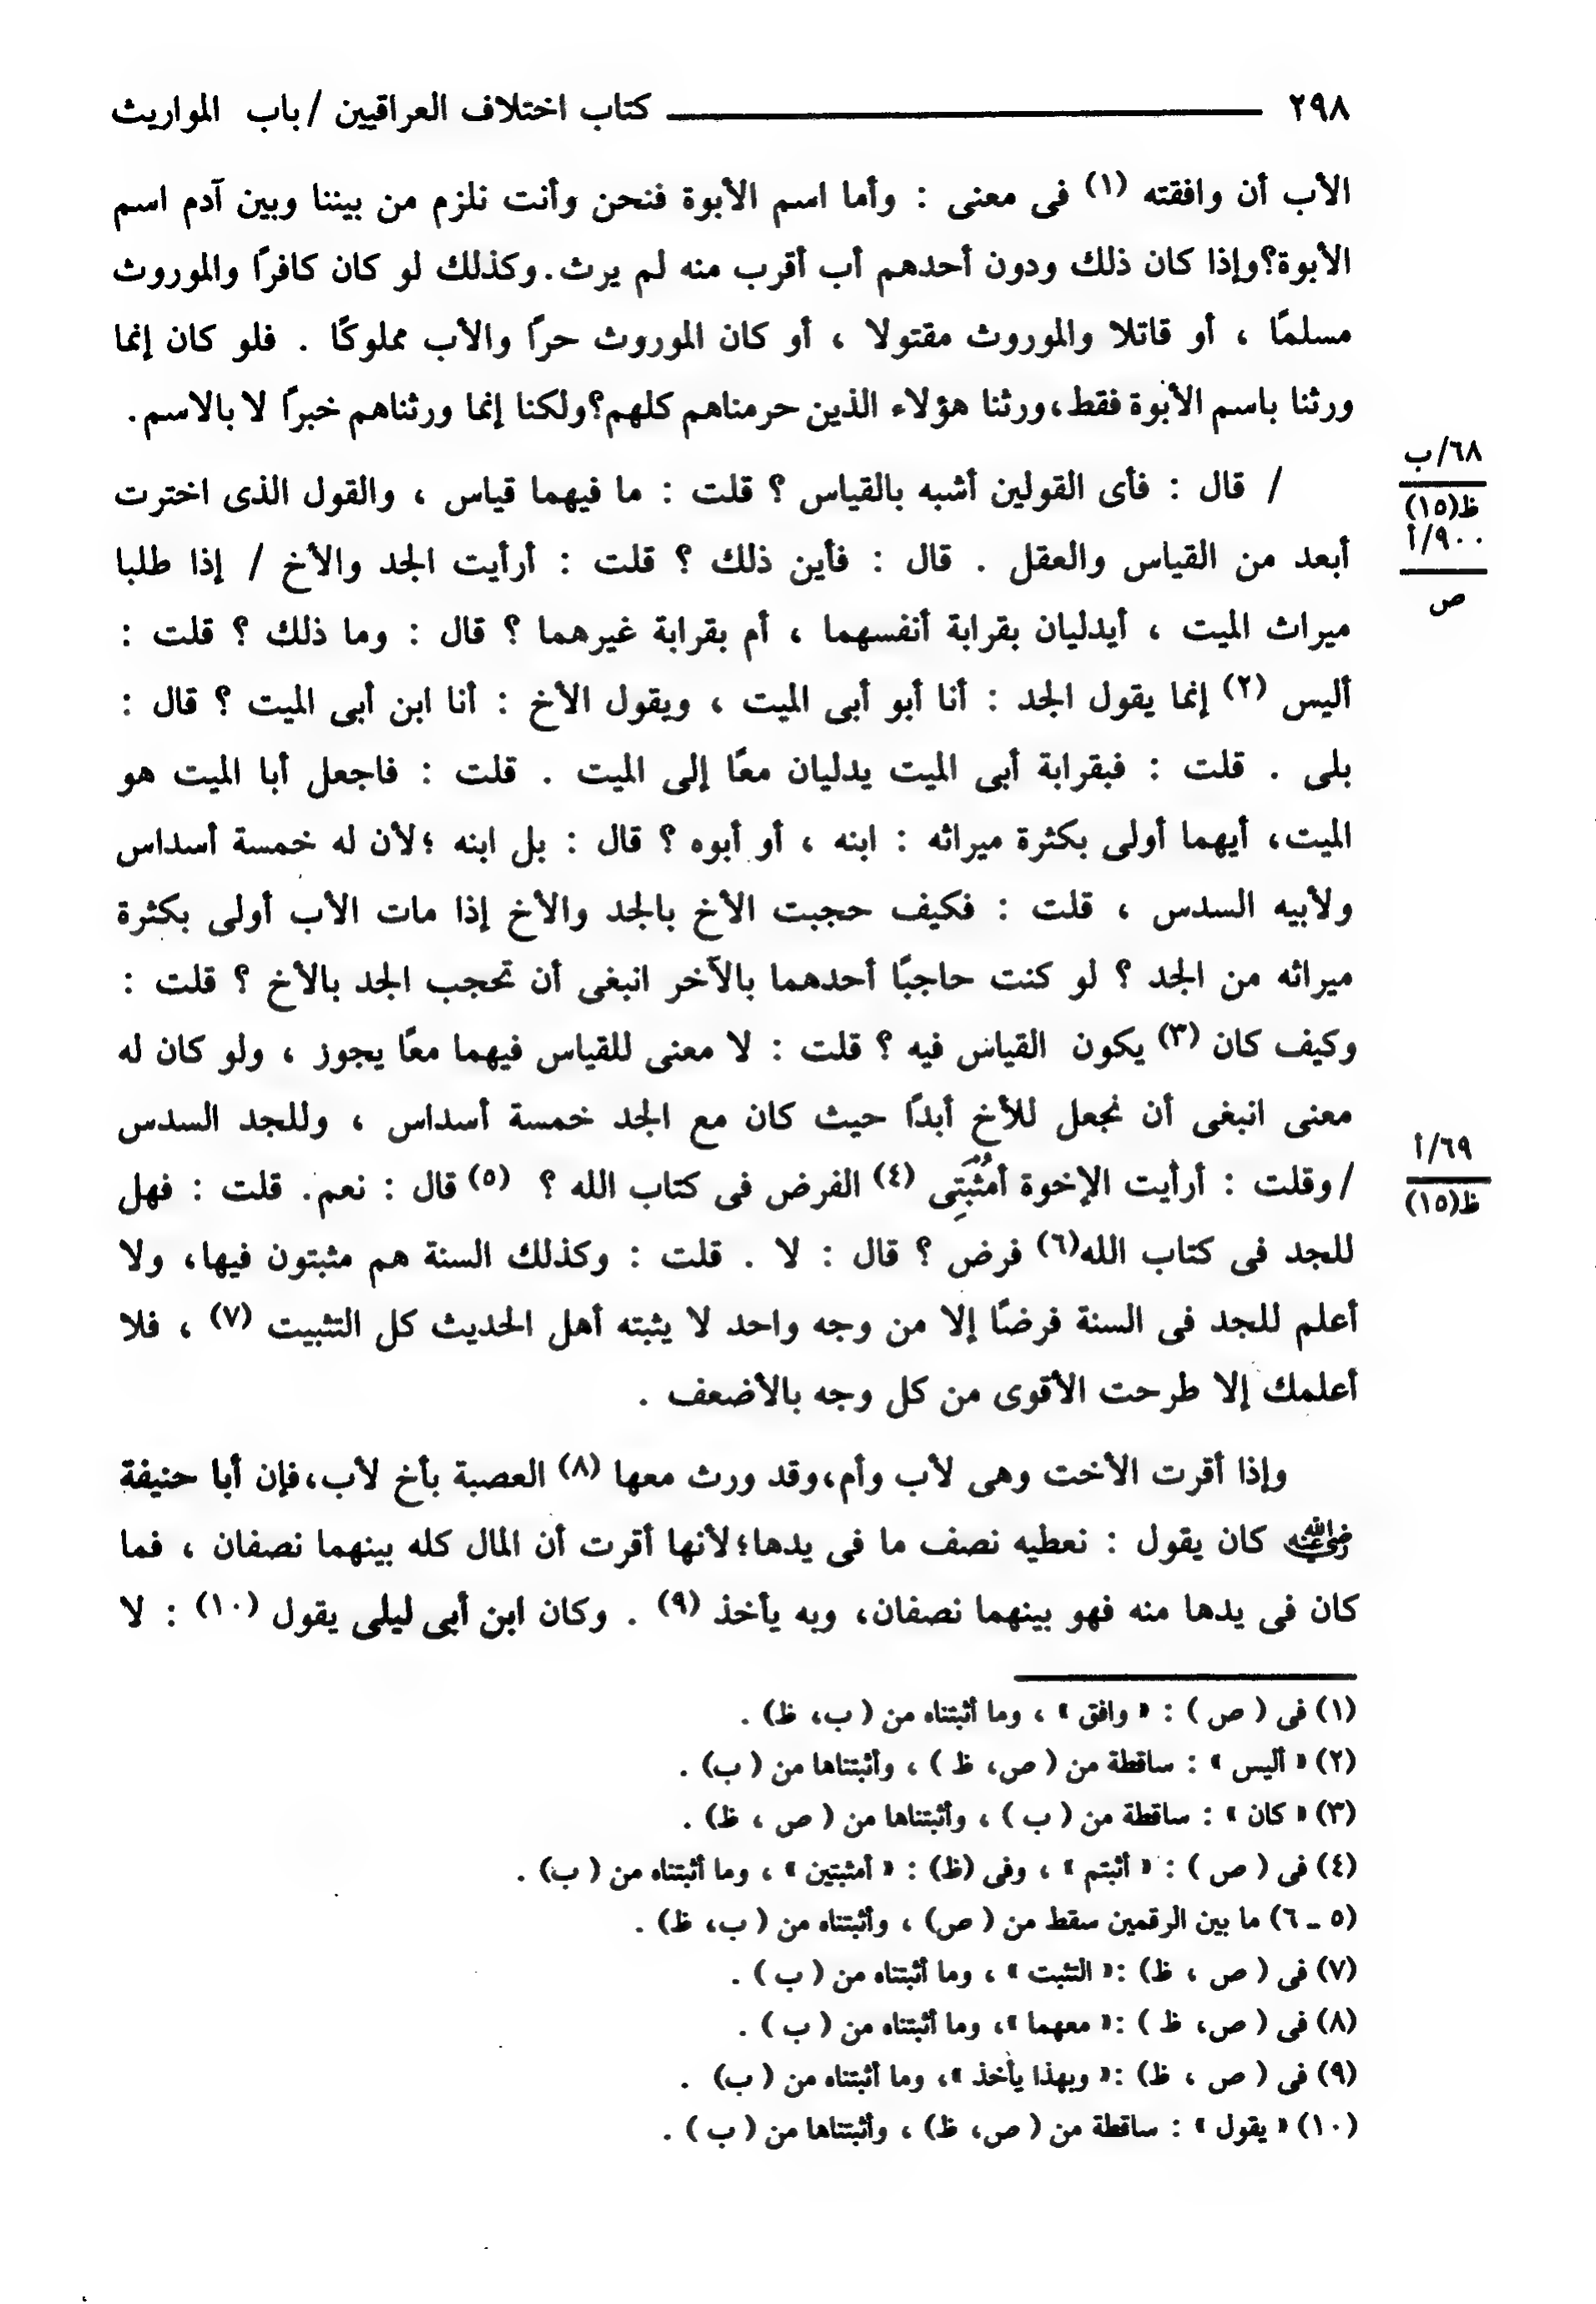 ٢٩٨ ــــــــــــــــــــــــــــــــــــــــ كتاب اختلاف العراقيين / باب المواريث
الأب أن وافقته (١) فى معنى : وأما اسم الأبوة فنحن وأنت نلزم من بيننا وبين آدم اسم
الأبوة؟وإذا كان ذلك ودون أحدهم أب أقرب منه لم يرث.وكذلك لو كان كافرًا والموروث
مسلمًا ، أو قاتلا والموروث مقتولا ، أو كان الموروث حرًا والأب مملوكًا . فلو كان إنما
ورثنا باسم الأبوة فقط،ورثنا هؤلاء الذين حرمناهم كلهم؟ولكنا إنما ورثناهم خبرًا لا بالاسم.
٦٨/ب
ظ(١٥)
٩٠٠/أ
ص
/ قال : فأى القولين أشبه بالقياس ؟ قلت : ما فيهما قياس ، والقول الذى اخترت
أبعد من القياس والعقل . قال : فأين ذلك ؟ قلت : أرأيت الجد والأخ / إذا طلبا
ميراث الميت ، أيدليان بقرابة أنفسهما ، أم بقرابة غيرهما ؟ قال : وما ذلك ؟ قلت :
أليس (٢) إنما يقول الجد : أنا أبو أبى الميت ، ويقول الأخ : أنا ابن أبى الميت ؟ قال :
بلى . قلت : فبقرابة أبى الميت يدليان معًا إلى الميت . قلت : فاجعل أبا الميت هو
الميت، أيهما أولى بكثرة ميراثه : ابنه ، أو أبوه ؟ قال : بل ابنه ؛لأن له خمسة أسداس
ولأبيه السدس ، قلت : فكيف حجبت الأخ بالجد والأخ إذا مات الأب أولى بكثرة
ميراثه من الجد ؟ لو كنت حاجبًا أحدهما بالآخر انبغى أن تحجب الجد بالأخ ؟ قلت :
وكيف كان (٣) يكون القياس فيه ؟ قلت : لا معنى للقياس فيهما معًا يجوز ، ولو كان له
معنى انبغى أن نجعل للأخ أبدًا حيث كان مع الجد خمسة أسداس ، وللجد السدس
٦٩/أ
ظ(١٥)
/ وقلت : أرأيت الإخوة أمُثْبَتِى (٤) الفرض فى كتاب الله ؟ (٥) قال : نعم. قلت : فهل
للجد فى كتاب الله(٦) فرض ؟ قال : لا . قلت : وكذلك السنة هم مثبتون فيها، ولا
أعلم للجد فى السنة فرضًا إلا من وجه واحد لا يثبته أهل الحديث كل التثبيت (٧) ، فلا
أعلمك إلا طرحت الأقوى من كل وجه بالأضعف .
وإذا أقرت الأخت وهى لأب وأم،وقد ورث معها (٨) العصبة بأخ لأب،فإن أبا حنيفة
رضي الله عنه كان يقول : نعطيه نصف ما فى يدها؛لأنها أقرت أن المال كله بينهما نصفان ، فما
كان فى يدها منه فهو بينهما نصفان، وبه يأخذ (٩) . وكان ابن أبى ليلى يقول (١٠) : لا
(١) فى ( ص ) : « وافق » ، وما أثبتناه من ( ب، ظ) .
(٢) « أليس » : ساقطة من ( ص، ظ ) ، وأثبتناها من ( ب) .
(٣) « كان » : ساقطة من ( ب ) ، وأثبتناها من ( ص ، ظ) .
(٤) فى ( ص ) : « أثبتم » ، وفى (ظ) : « أمثبتين » ، وما أثبتناه من ( ب) .
(٥ ـ ٦) ما بين الرقمين سقط من ( ص) ، وأثبتناه من ( ب، ظ) .
(٧) فى ( ص ، ظ) :« التثبت » ، وما أثبتناه من ( ب ) .
(٨) فى ( ص، ظ ) :« معهما »، وما أثبتناه من ( ب ) .
(٩) فى ( ص ، ظ) :« وبهذا يأخذ »، وما أثبتناه من ( ب) .
(١٠) « يقول » : ساقطة من ( ص، ظ) ، وأثبتناها من ( ب ) .